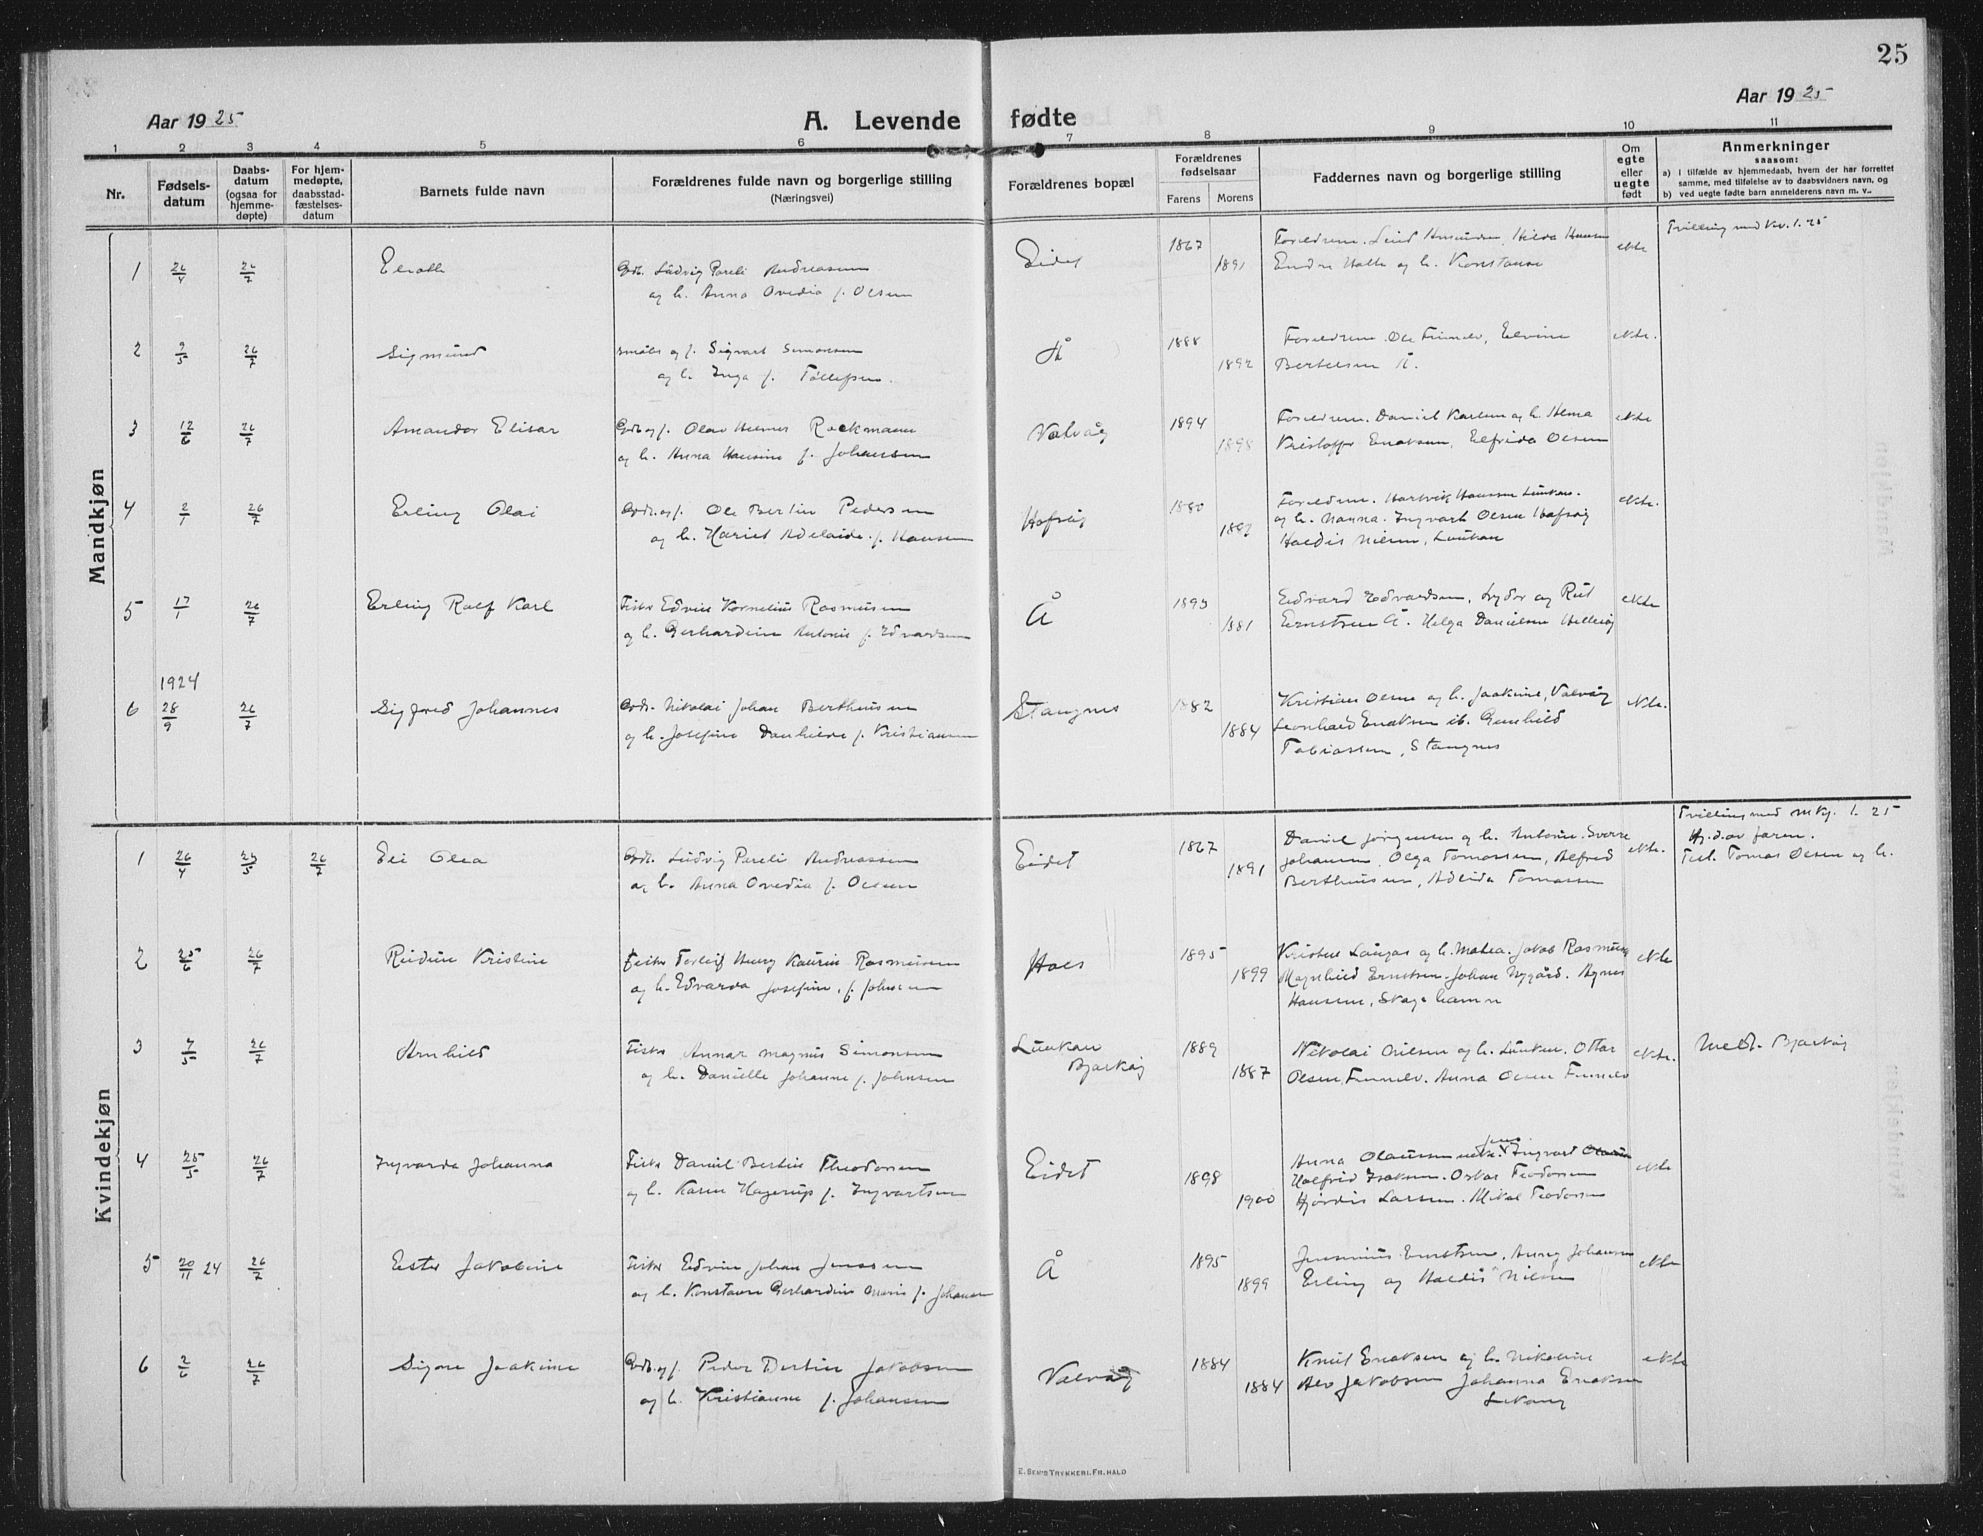 25
Aar 1925
A. Levende fødte
Aar 1925
1 2 3 4 5 6 7 8 9 10 11
Nr.
Fødsels-
datum
Daabs-
datum
(ogsaa for
hjemme-
døpte)
For hjem-
medøpte,
daabsstad-
fæstelses-
datum
Barnets fulde navn
Forældrenes fulde navn og borgerlige stilling
(Næringsvei)
Forældrenes bopæl
Forældrenes
fødselsaar
Farens Morens
Faddernes navn og borgerlige stilling
Om
egte
eller
uegte
født
Anmerkninger
saasom:
a) I tilfælde av hjemmedaab, hvem der har forrettet
samme, med tilføielse av to daabsvidners navn, og
b) ved uegte fødte barn anmelderens navn m. v..
Mandkjøn
1 26/4 26/7 Gdb. Ludvig Pareli Andreassen Eidet 1867 ekte Tvilling med Kv. 1. 25
og h. Anna Ovedia f. Olsen 1891 Endre Holte og h. Konstanse
2 2/5 26/7 Sigmund Sigvart Simonsen Å 1888 Foreldrene. Ole Finnelv, Elvine ekte.
og h. Inga f. Tollefsen. 1892 Bertelsen Å.
3 12/6 26/7 Amandor Elisar Gdb og f. Olav Helmer Rockmann Valvåg 1894 Foreldrene. Daniel Karlsen og h. ekte
og h. Anna Hansine f. Johansen 1898 Kristoffer Enoksen, Elfrida Olsen
4 2/1 26/7 Erling Olai Gdb. og f. Ole Bertin Pedersen Hofsøy 1880 Foreldrene. Hartvik Hansen Lunkan. ekte.
og h. Hariet Adelaide f. Hansen og h. Nanna. Ingvart Olsen
Haldis Nilsen, Lunkan
5 17/1 26/7 Erling Rolf Karl Fisker Edvin Kornelius Rasmussen Å 1893 Edvard Edvardsen, Lydor og Rut ekte
og h. Gerhardine Antonie f. Edvardsen 1881 Ernstsen Å. Helga Danielsen
1924
6 28/9 26/7 Sigfred Johannes Gdb. Nikolai Johan Bertheussen Stangnes 1882 Kristian Olsen og h. Jaakine, Valvåg ekte.
og h. Josefine Danhilde f. Kristiansen 1884 Leonhard Enoksen ib. Gunhild
Tobiassen, Stangnes
Kvindekjøn
Tvilling med Mkj. 1. 25
1 26/4 26/7 Eli Olea Gdb. Ludvig Pareli Andreassen Eidet 1867 Daniel Jørgensen og h. Antonie. Sverre ekte. Hj. d. av faren.
og h. Anna Ovedia f. Olsen 1891 Johansen, Olga Tomassen, Alfred Test. Tomas Olsen og h.
Bertheussen, Adeida Tomassen
2 25/6 26/7 Reidun Kristine Fisker Torleif Henry Kaurin Rasmussen 1895 og h. Malea. Jakob Rasmussen ekte
og h. Edvarda Josefine, f. Johnsen 1899 Magnhild Ernstsen. Johan Nygård. Agnes
Hansen, Skagehamn
3 7/5 26/7 Arnhild Fisker Annar Magnus Simonsen Lunkan 1889 Nikolai Nilsen og h. Lunkan. Ottar ekte. Medt. Bjarkøy
og h. Danielle Johanne f. Johnsen Bjarkøy 1887 Olsen, Finnelv. Anna Olsen Finnelv
4 25/5 26/7 Ingvarda Johanna Fisker Daniel Bertin Theodorsen Eidet 1898 Anna Olaussen Ingvard ekte
og h. Karen Hagerup f. Ingvartsen 1900 Halfrid Isaksen. Oskar Teodorsen
Hjørdis Larsen. Mikal Teodorsen
5 20/11 24 26/7 Ester Jakobine Fisker Edvin Johan Jenssen Å 1895 Ernstsen, Anny Johansen ekte
og h. Konstanse Gerhardine Marie f. Johansen 1899 Erling og Haldis Nilsen
6 2/6 26/7 Signe Joakine Gdb. og f. Peder Bertin Jakobsen Valvåg 1884 Knut Enoksen og h. Nikoline ekte
og h. Kristianne f. Johansen 1884 Alv Jakobsen Johanna Enoksen
E. SEM'S TRYKKERI, FR.HALD